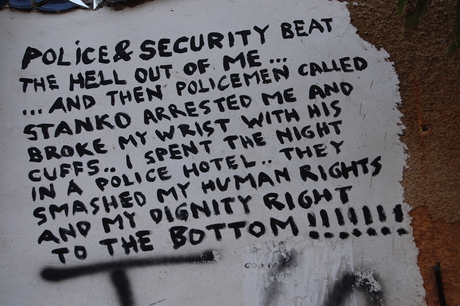 POLICE & SECURITY BEAT
THE HELL OUT OF ME...
...AND THEN POLICEMEN CALLED
STANKO ARRESTED ME AND
BROKE MY WRIST WITH HIS
CUFFS.. I SPENT THE NIGHT
IN A POLICE HOTEL.. THEY
SMASHED MY HUMAN RIGHTS
AND MY DIGNITY RIGHT
TO THE BOTTOM!!!!!!!!